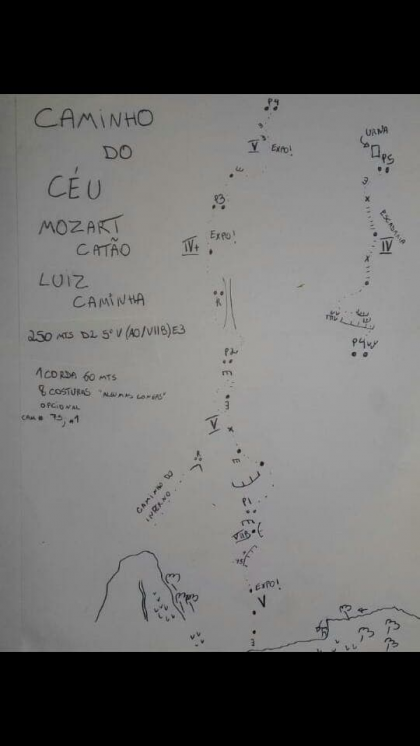 CAMINHO
DO
CÉU
MOZART
CATÃO
LUIZ
CAMINHA
250 MTS D2 5º V (A0/VIIB) E3
1 CORDA 60 MTS
8 COSTURAS "ALGUMAS LONGAS"
OPCIONAL
CAM # .75, #1
P4
V EXPO!
P3
IV+ EXPO!
R
P2
V
CAMINHO DO
INFERNO
P1
VIIB
EXPO!
V
URNA
P5
ESCADARIA
IV
P4